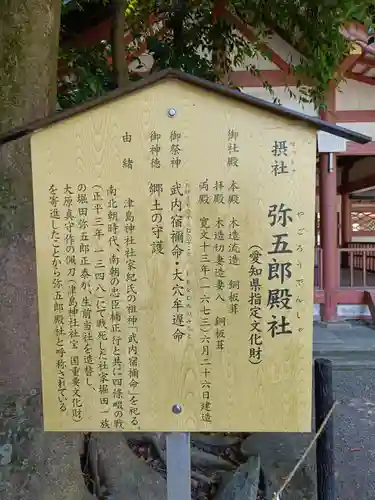 せっしゃ
摂社
やごろうでんしゃ
弥五郎殿社
(愛知県指定文化財)
御社殿 本殿 木造流造 銅板葺
拝殿 木造切妻造妻入 銅板葺
両殿 寛文十三年(一六七三)六月二十六日建造
御祭神 武内宿禰命・大穴牟遅命
御神徳 郷土の守護
由緒 津島神社社家紀氏の祖神「武内宿禰命」を祀る。
南北朝時代、南朝の忠臣楠正行と共に四條畷の戦
(正平三年・一三四八)にて戦死した社家堀田一族
の堀田弥五郎正泰が、生前当社を造営し、
大原真守作の佩刀(津島神社社宝 国重要文化財)
を寄進したことから弥五郎殿社と呼称されている。